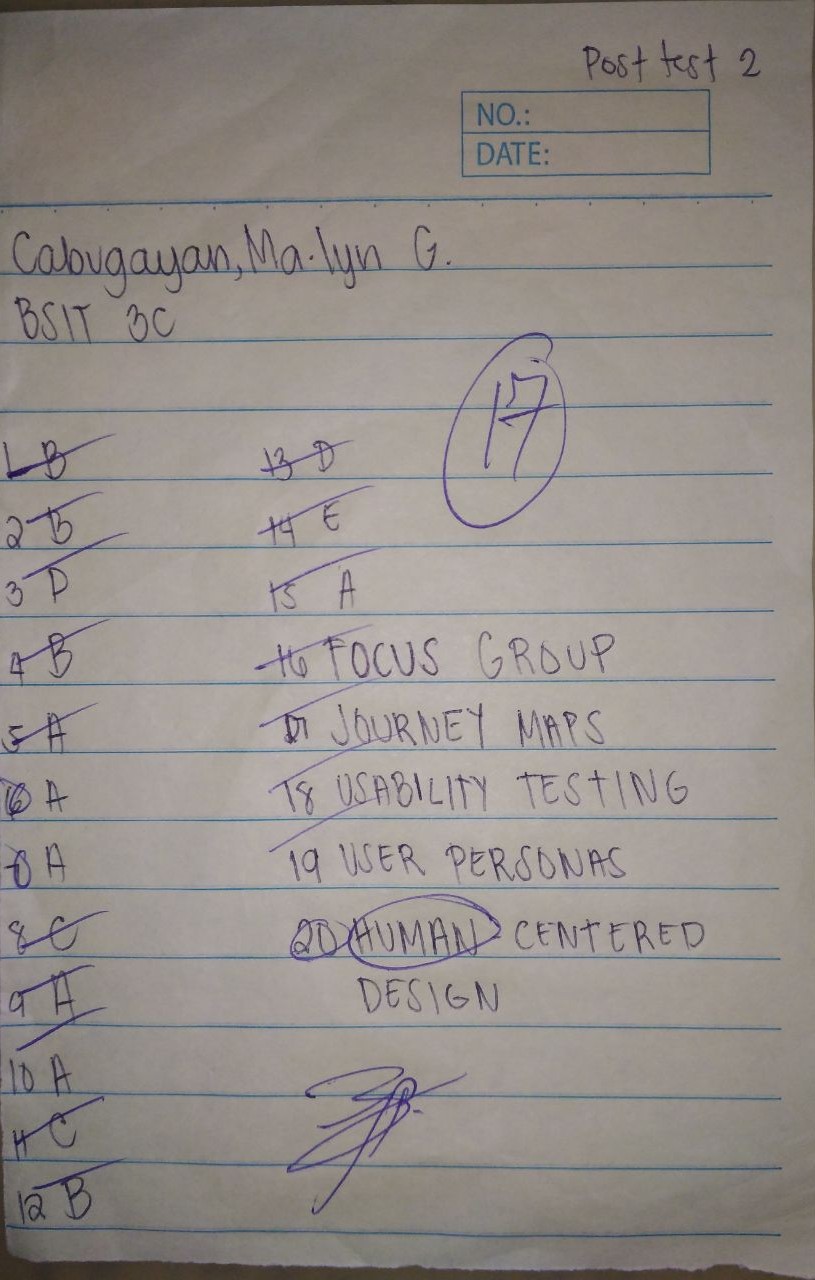 Post test 2
NO.:
DATE:
Cabugayan, Ma. lyn G.
BSIT 3C
17
1 B
2 B
3 D
4 B
5 A
6 A
A
8 C
9 A
10 A
11 C
12 B
13 D
14 E
15 A
16 FOCUS GROUP
17 JOURNEY MAPS
18 USABILITY TESTING
19 USER PERSONAS
20 HUMAN-CENTERED
DESIGN